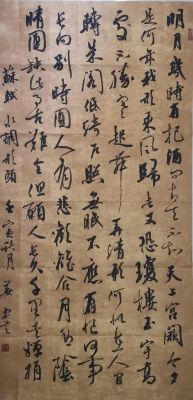 明月幾時有把酒問青天不知天上宮闕今夕
是何年我欲乘風歸去又恐瓊樓玉宇高
處不勝寒起舞弄清影何似在人間
轉朱閣低綺户照無眠不應有恨何事
長向别時圓人有悲歡離合月有陰
晴圓缺此事古難全但願人長久千里共嬋娟
蘇軾水調歌頭 壬寅秋月